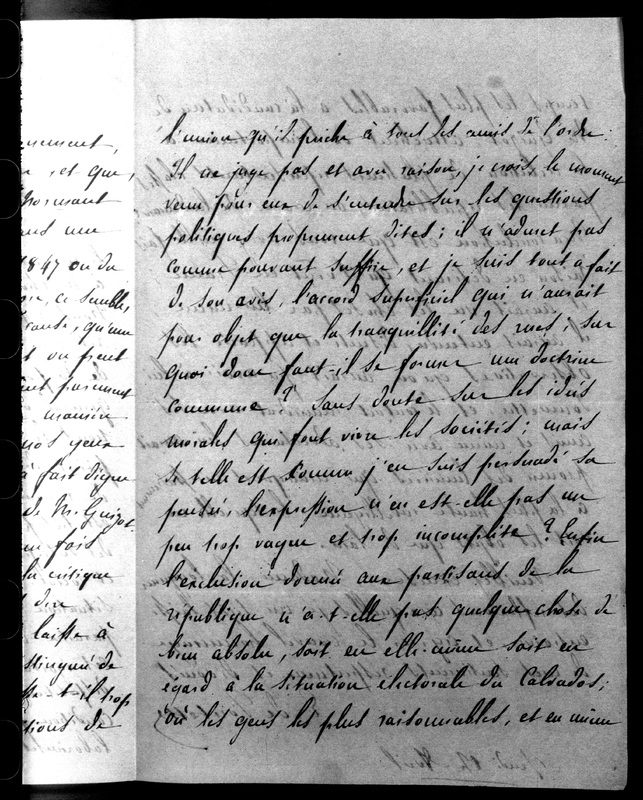 nement,
et que,
normant
ans une
1847 ou du
ce semble,
cause, qu'une
t on peut
ent purement
manière
nos yeux
à fait digne
de Mr Guizot.
un fois
la critique
dire
laisse à
stingué de
t-il trop
tions de
l'union qu'il prêche à tous les amis de l'ordre.
Il ne juge pas et avec raison, je crois, le moment
venu pour eux de s'entendre sur les questions
politiques proprement dites ; il n'admet pas
comme pouvant suffire, et je suis tout a fait
de son avis, l'accord superficiel qui n'aurait
pour objet que la tranquillité des rues ; sur
quoi donc faut-il se former une doctrine
commune ? Sans doute sur les idées
morales qui font vivre les sociétés ; mais
si telle est comme j'en suis persuadé sa
pensée, l'expression n'en est-elle pas un
peu trop vague et trop incomplète ? Enfin
l'exclusion donnée aux partisans de la
république n'a-t-elle pas quelque chose de
bien absolu, soit en elle-même soit en
égard à la situation électorale du Calvados,
où les gens les plus raisonnables, et en même